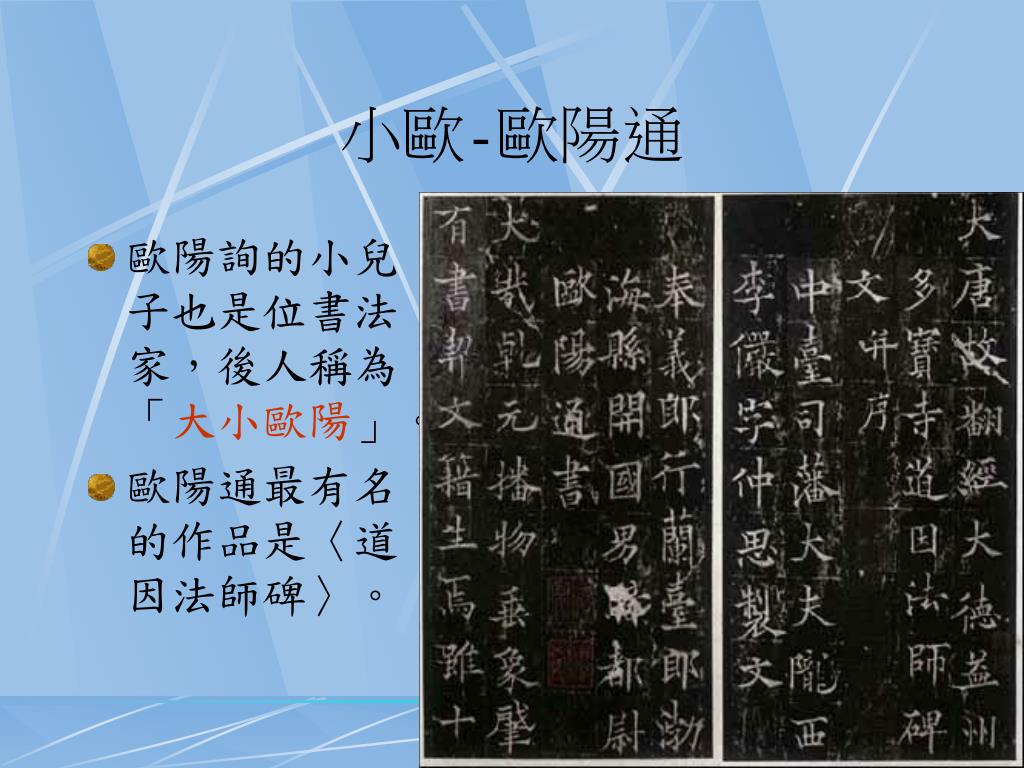 小歐-歐陽通
歐陽詢的小兒
子也是位書法
家，後人稱為
「大小歐陽」。
歐陽通最有名
的作品是〈道
因法師碑〉。
大唐故翻經大德益州
多寶寺道因法師碑
文并序
中臺司藩大夫隴西
李儼字仲思製文
奉義郎行蘭臺郎渤
海縣開國男騎都尉
歐陽通書
大哉乾元播物垂象肇
有書契文籍生焉雖十